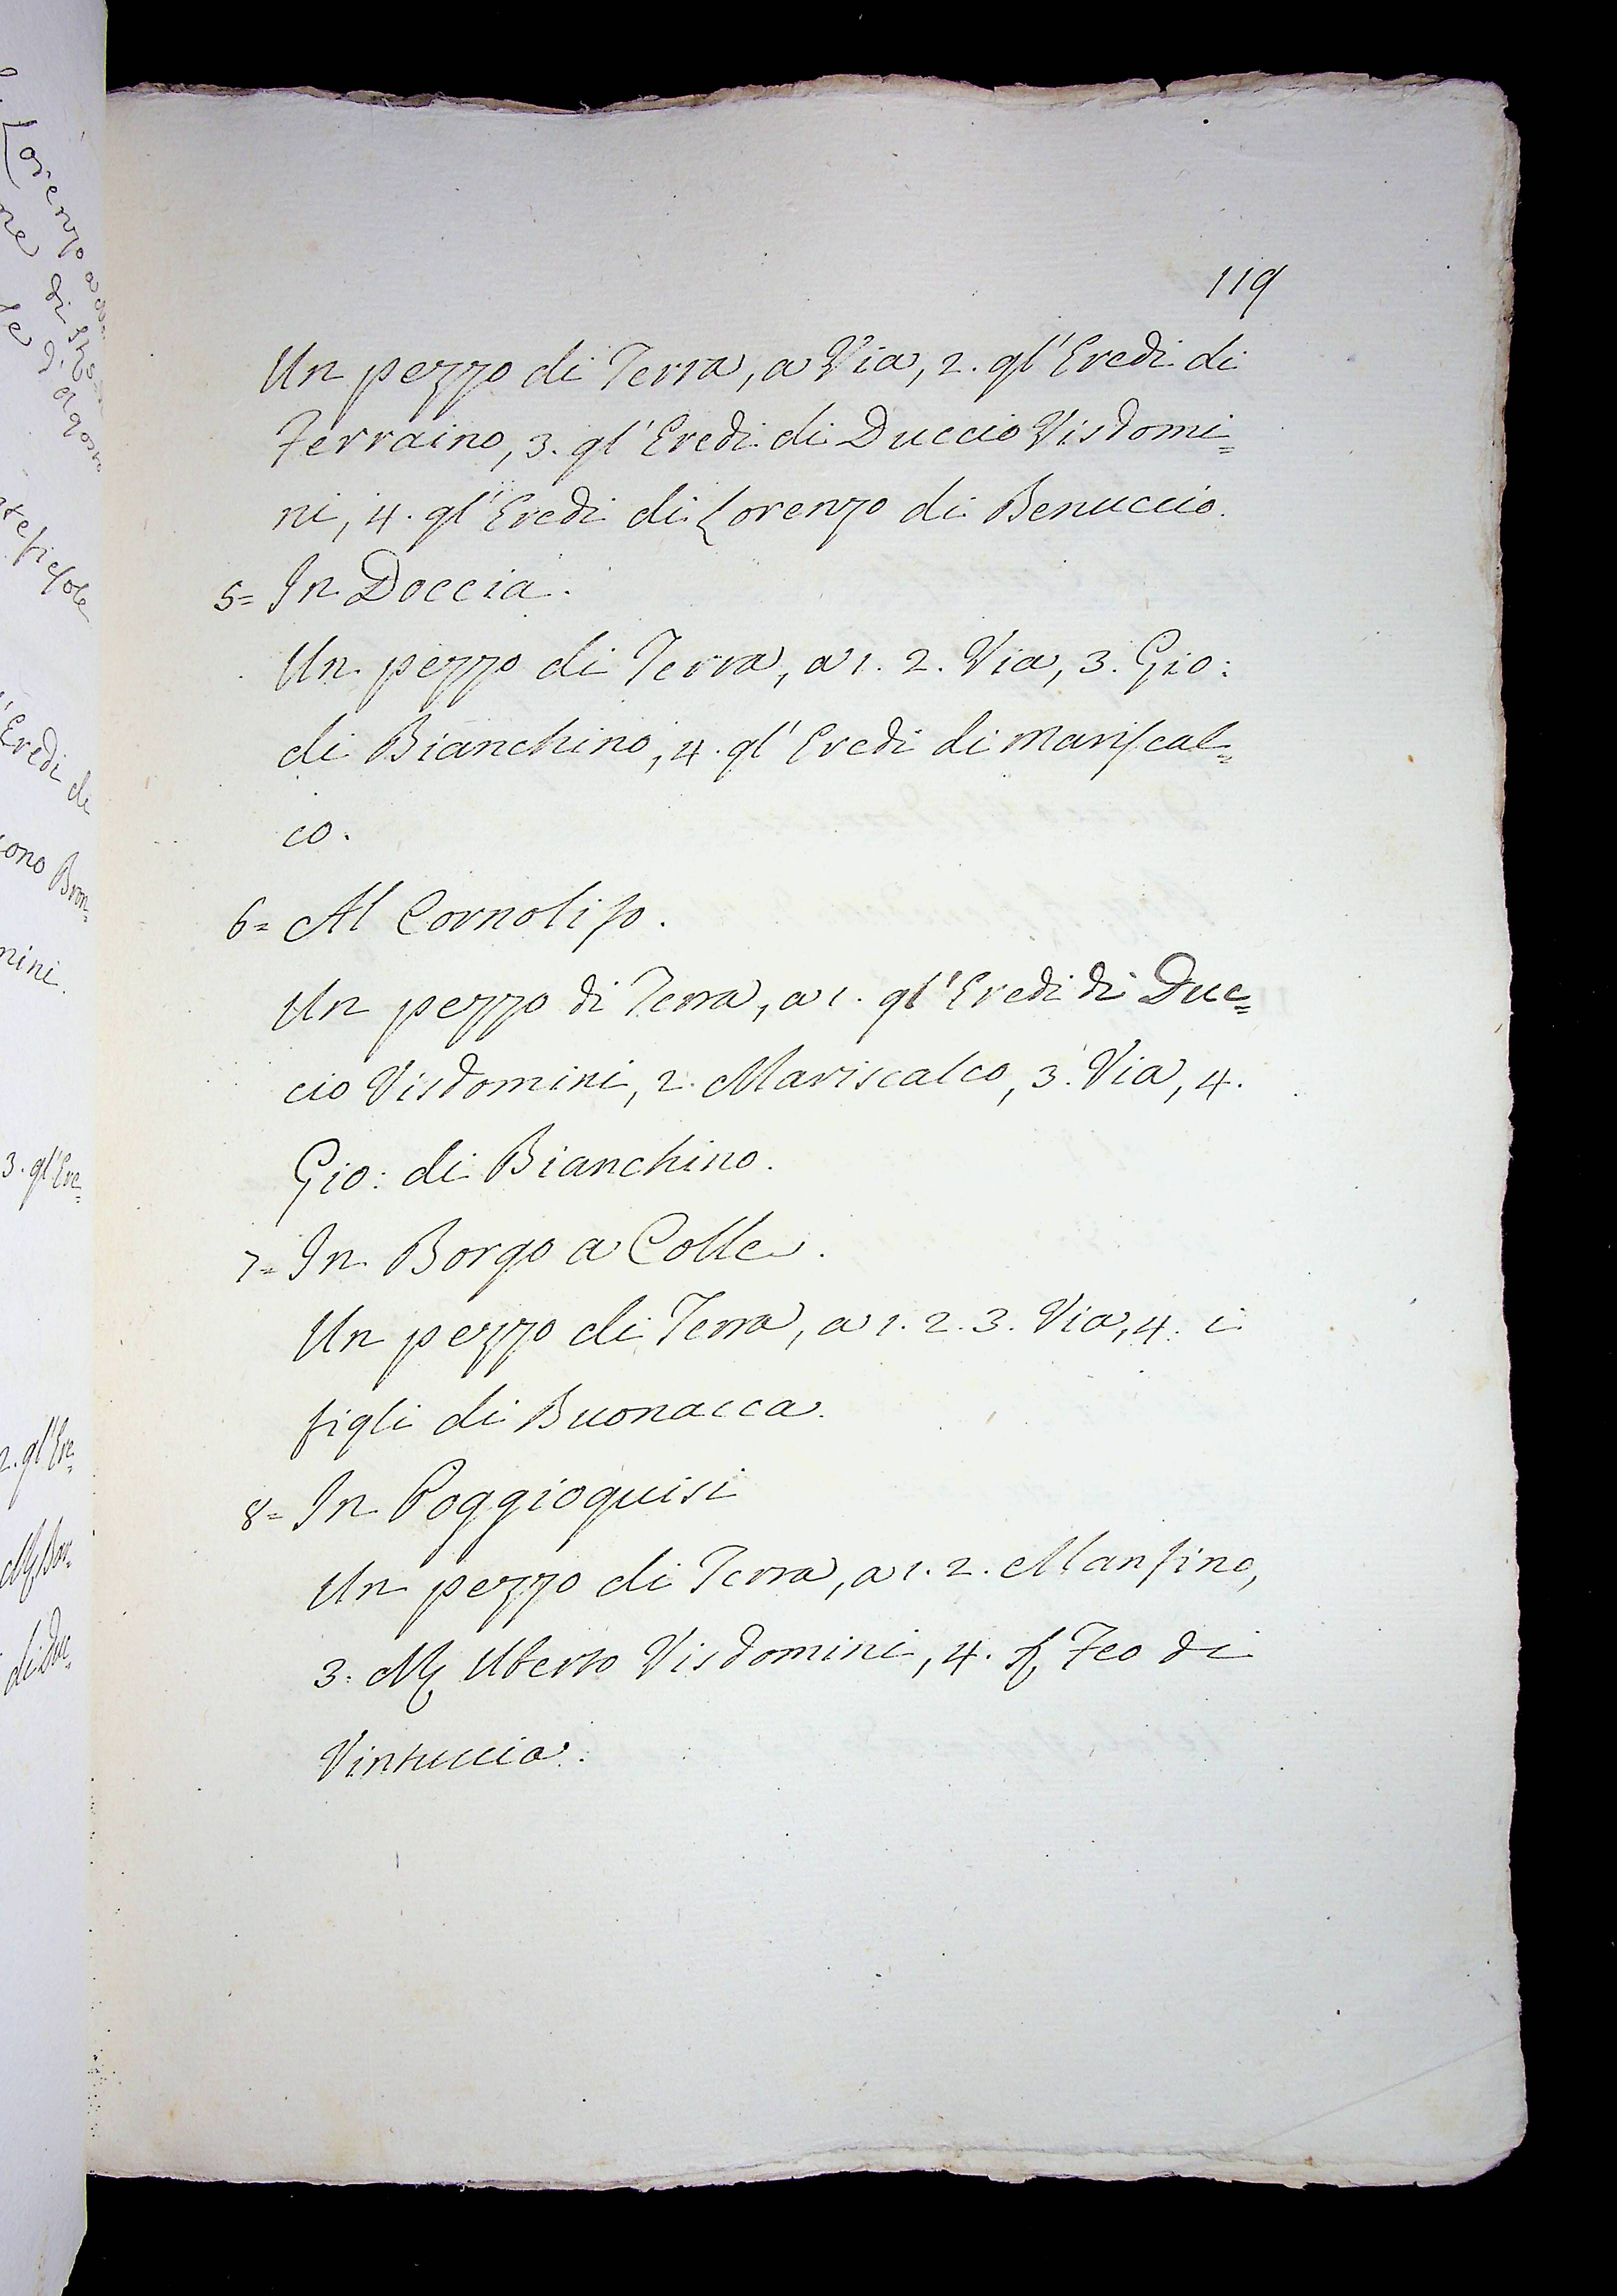 119
Un pezzo di Terra, a Via, 2. gl'Eredi di
Ferraino, 3. gl'Eredi di Duccio Visdomi=
ni, 4. gl'Eredi di Lorenzo di Benuccio.
5= In Doccia.
Un pezzo di Terra, a 1. 2. Via, 3. Gio:
di Bianchino, 4. gl'Eredi di Mariscal=
co.
6= Al Cornoliso.
Un pezzo di Terra, a 1. gl'Eredi di Duc=
cio Visdomini, 2. Mariscalco, 3. Via, 4.
Gio: di Bianchino.
7= In Borgo a Colle.
Un pezzo di Terra, a 1. 2. 3. Via, 4. i
figli di Buonacca.
8= In Poggioquisi
Un pezzo di Terra, a 1. 2. Mansino,
3. M. Uberto Visdomini, 4. Feo di
Vintuccio.